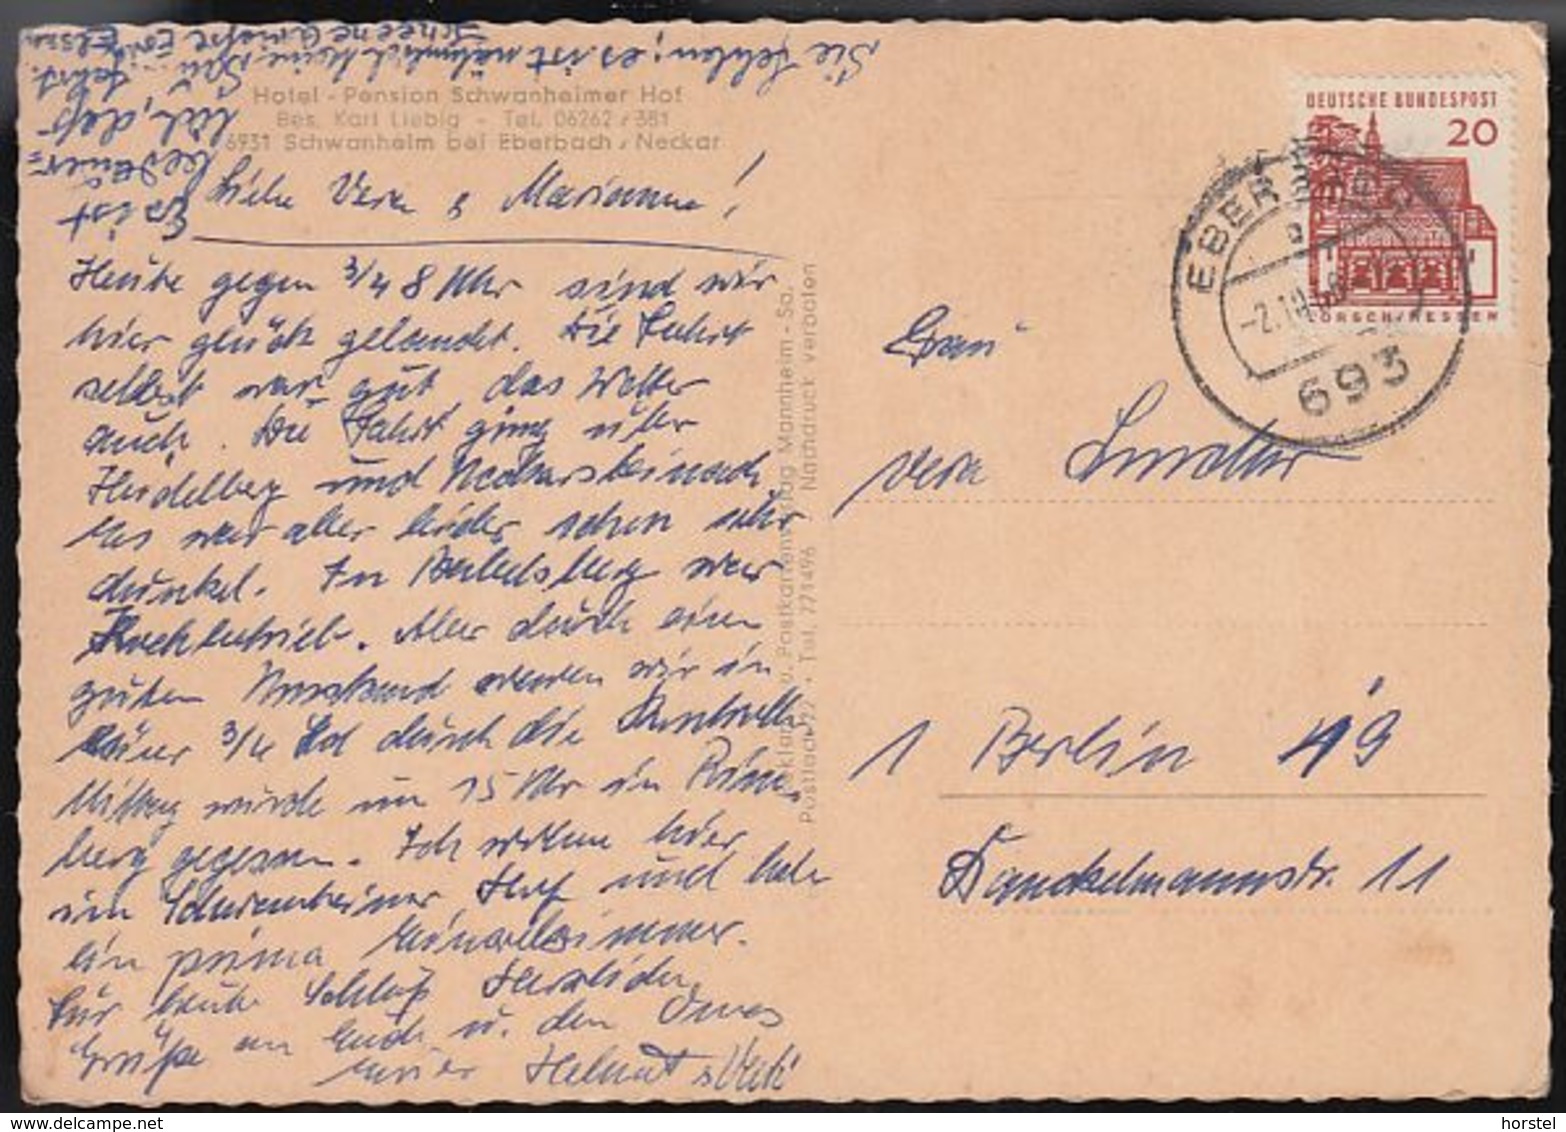 Sie fehlen; es ist nämlich keine
Es ist
bedauer=
lich, daß
Sie
Hotel - Pension Schwanheimer Hof
Bes. Karl Liebig - Tel. 06262 / 381
6931 Schwanheim bei Eberbach / Neckar
Liebe Vera & Marianne!
Heute gegen 3/4 8 Uhr sind wir
hier glücklich gelandet. Die Fahrt
selbst war gut, das Wetter
auch. Die Fahrt ging über
Heidelberg und Neckarsteinach
Es war aber leider schon sehr
dunkel. In Babelsberg war
Hochbetrieb. Aber durch einen
guten Umstand waren wir in
einer 3/4 Std durch die Kontrolle
Mittag wurde um 15 Uhr in
berg gegessen. Ich wohne hier
im Schwanheimer Hof und habe
ein prima Einzelzimmer.
Für heute Schluß Herzliche
Grüße an Euch u. den Omas
Euer Helmut
Reklame- u. Postkartenverlag Mannheim - Sa.
Postfach 22 - Tel. 771496 Nachdruck verboten
DEUTSCHE BUNDESPOST
20
LORSCH/HESSEN
EBERBACH
-2.10.
693
Frau
Vera
1 Berlin 19
Danckelmannstr. 11
www.delcampe.net
horstel